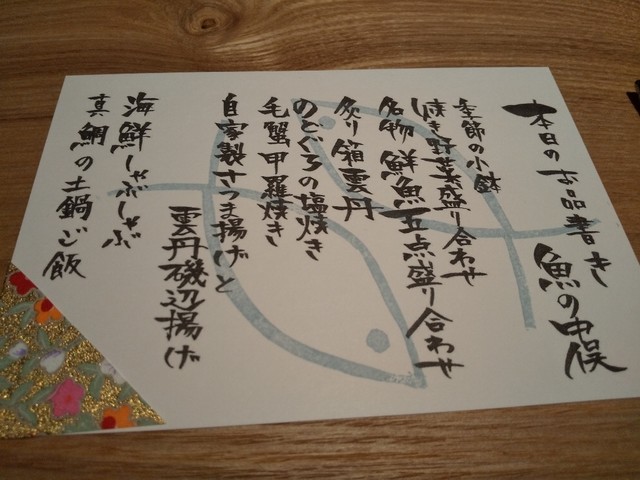 本日のお品書き 魚の中俣
季節の小鉢
焼き野菜盛り合わせ
名物 鮮魚五点盛り合わせ
炙り箱雲丹
のどぐろの塩焼き
毛蟹甲羅焼き
自家製さつま揚げと
雲丹磯辺揚げ
海鮮しゃぶしゃぶ
真鯛の土鍋ご飯